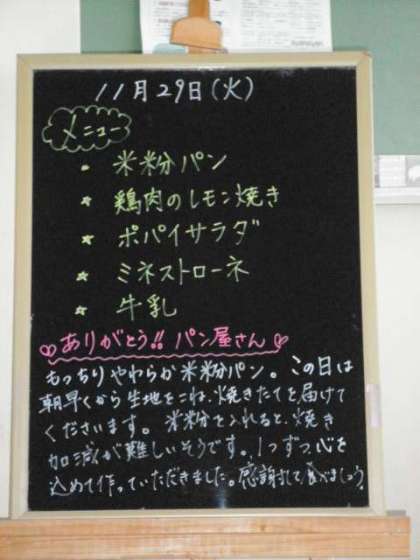 11月29日(火)
メニュー
☆ 米粉パン
☆ 鶏肉のレモン焼き
☆ ポパイサラダ
☆ ミネストローネ
☆ 牛乳
ありがとう!! パン屋さん
もっちりやわらか米粉パン。この日は
朝早くから生地をこね、焼きたてを届けて
くださいます。米粉を入れると、焼き
加減が難しいそうです。1つずつ心を
込めて作っていただきました。感謝して食べましょう。